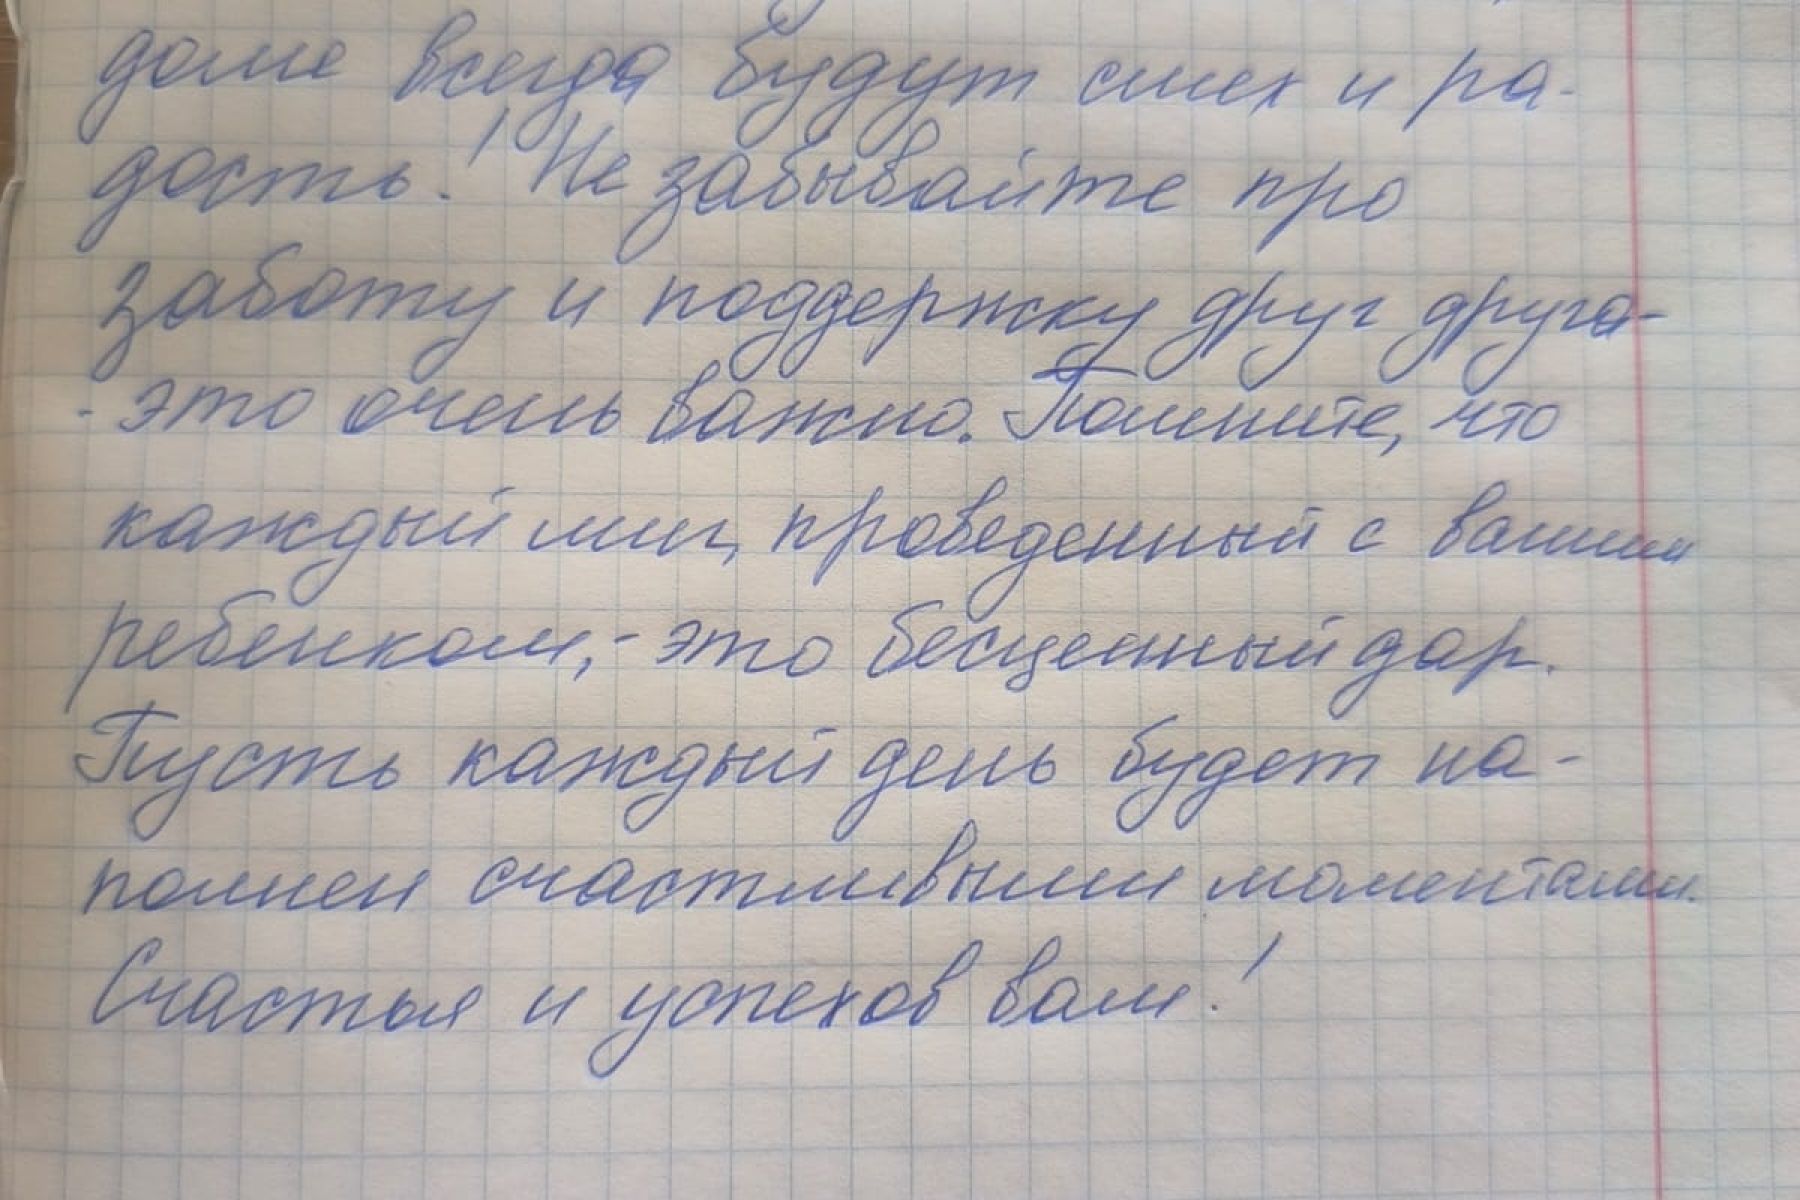 доме всегда будут смех и ра-
дость! Не забывайте про
заботу и поддержку друг друга-
- это очень важно. Помните, что
каждый миг, проведенный с вашим
ребенком, - это бесценный дар.
Пусть каждый день будет на-
полнен счастливыми моментами.
Счастья и успехов вам!